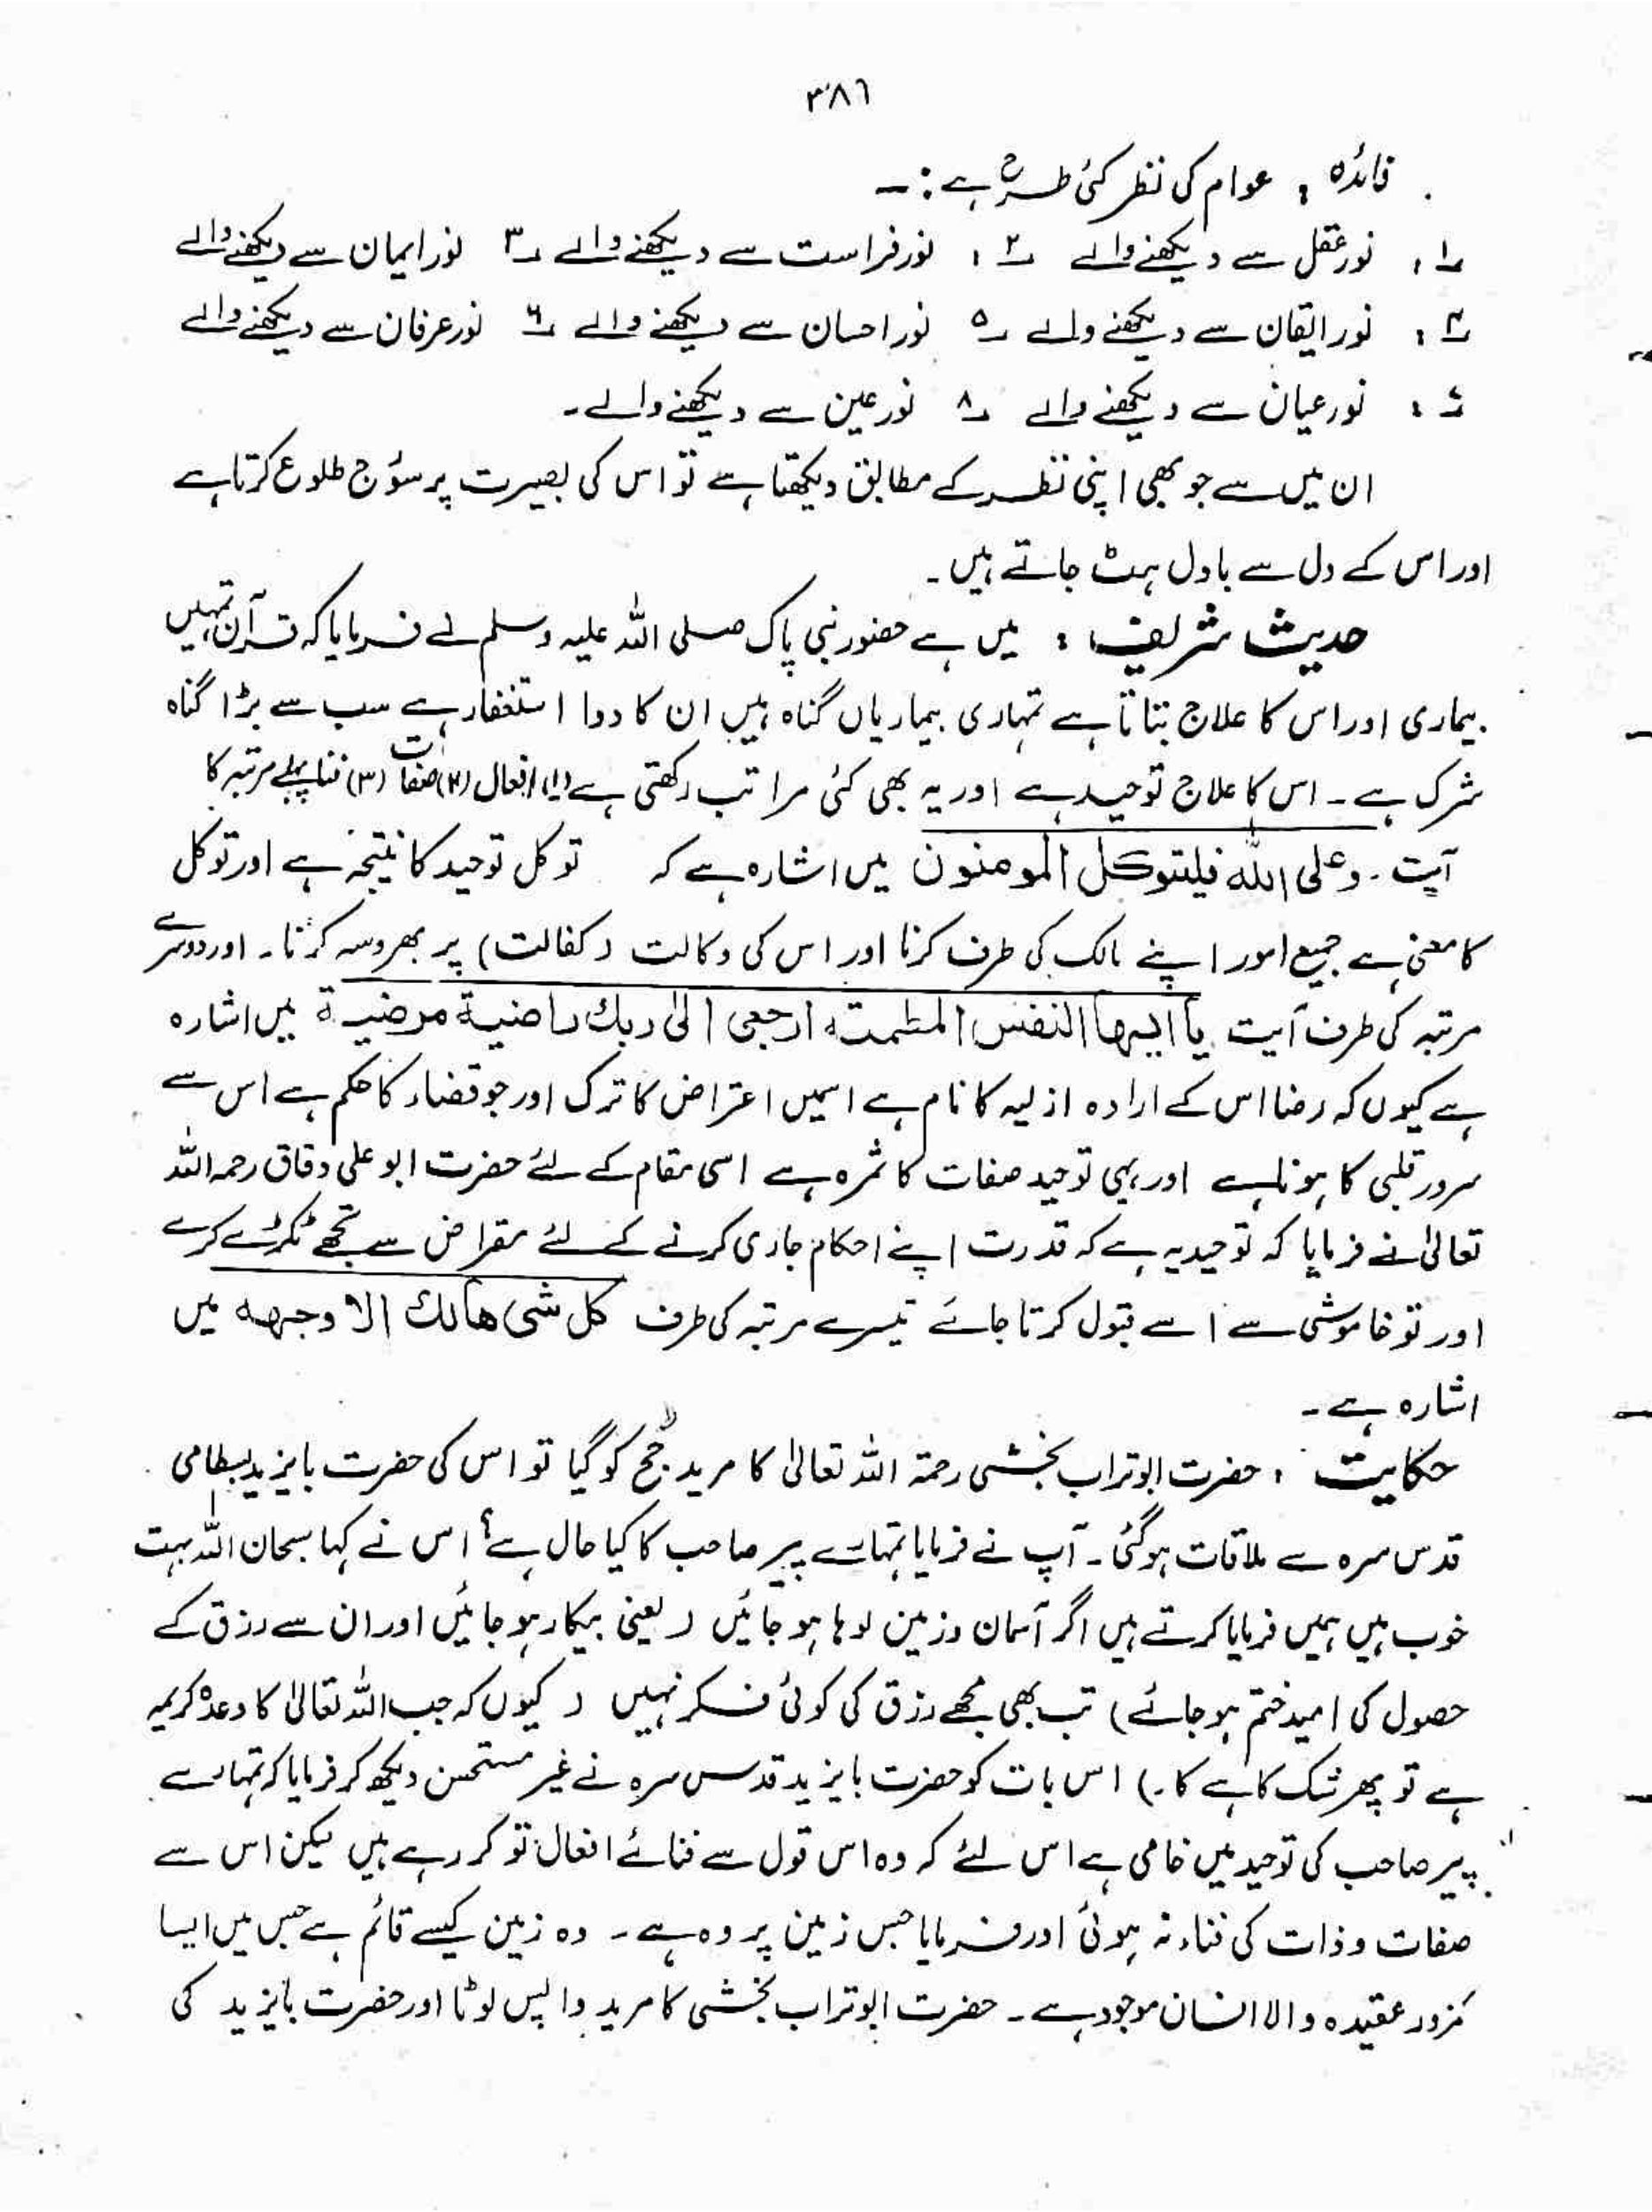 ۳۸۶
فائدہ : عوام کی نظر کئی طرح ہے :۔
۱ : نور عقل سے دیکھنے والے ۲ : نور فراست سے دیکھنے والے ۳ نور ایمان سے دیکھنے والے
۴ : نور ایقان سے دیکھنے والے ۵ نور احسان سے دیکھنے والے ۶ نور عرفان سے دیکھنے والے
۷ : نور عیان سے دیکھنے والے ۸ نور عین سے دیکھنے والے ۔
ان میں سے جو بھی اپنی نظر کے مطابق دیکھتا ہے تو اس کی بصیرت پر سورج طلوع کرتا ہے
اور اس کے دل سے بادل ہٹ جاتے ہیں ۔
حدیث شریف : میں ہے حضور نبی پاک صلی اللہ علیہ وسلم نے فرمایا کہ قرآن تمہیں
بیماری اور اس کا علاج بتاتا ہے تمہاری بیماریاں گناہ ہیں ان کا دوا استغفار ہے سب سے بڑا گناہ
شرک ہے ۔ اس کا علاج توحید ہے اور یہ بھی کئی مراتب رکھتی ہے (۱) افعال (۲) صفات (۳) فنا پہلے مرتبہ کا
آیت ۔ وعلی اللہ فلیتوکل المومنون میں اشارہ ہے کہ توکل توحید کا نتیجہ ہے اور توکل
کا معنی ہے جمیع امور اپنے مالک کی طرف کرنا اور اس کی وکالت (کفالت) پر بھروسہ کرنا ۔ اور دوسرے
مرتبہ کی طرف آیت یا ایہا النفس المطمئنۃ ارجعی الی ربك راضیۃ مرضیۃ میں اشارہ
ہے کیوں کہ رضا اس کے ارادہ ازلیہ کا نام ہے اسمیں اعتراض کا ترک اور جو قضاء کا حکم ہے اس سے
سرور قلبی کا ہونا ہے اور یہی توحید صفات کا ثمرہ ہے اسی مقام کے لئے حضرت ابو علی دقاق رحمہ اللہ
تعالیٰ نے فرمایا کہ توحید یہ ہے کہ قدرت اپنے احکام جاری کرنے کے لئے مقراض سے تجھے ٹکڑے کرے
اور تو خاموشی سے اسے قبول کرتا جائے تیسرے مرتبہ کی طرف کل شی ھالك الا وجہہ میں
اشارہ ہے ۔
حکایت : حضرت ابو تراب بخشی رحمۃ اللہ تعالیٰ کا مرید حج کو گیا تو اس کی حضرت بایزید بسطامی
قدس سرہ سے ملاقات ہو گئی ۔ آپ نے فرمایا تمہارے پیر صاحب کا کیا حال ہے؟ اس نے کہا سبحان اللہ بہت
خوب ہیں ہمیں فرمایا کرتے ہیں اگر آسمان و زمین لوہا ہو جائیں (یعنی بیکار ہو جائیں اور ان سے رزق کے
حصول کی امید ختم ہو جائے) تب بھی مجھے رزق کی کوئی فکر نہیں (کیوں کہ جب اللہ تعالیٰ کا وعدہ کریمہ
ہے تو پھر شک کا ہے کا ۔) اس بات کو حضرت بایزید قدس سرہ نے غیر مستحسن دیکھ کر فرمایا کہ تمہارے
پیر صاحب کی توحید میں خامی ہے اس لئے کہ وہ اس قول سے فنائے افعال تو کر رہے ہیں لیکن اس سے
صفات و ذات کی فناء نہ ہوئی اور فرمایا جس زمین پر وہ ہے ۔ وہ زمین کیسے قائم ہے جس میں ایسا
کمزور عقیدہ والا انسان موجود ہے ۔ حضرت ابو تراب بخشی کا مرید واپس لوٹا اور حضرت بایزید کی